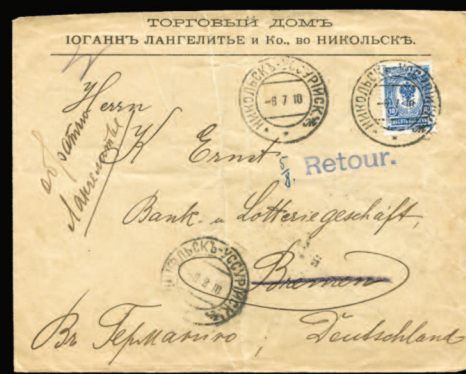 ТОРГОВЫЙ ДОМЪ
ІОГАННЪ ЛАНГЕЛИТЬЕ и Ко., во НИКОЛЬСКѢ.
НИКОЛЬСКЪ-УССУРІЙСК.
-6 7 10
НИКОЛЬСКЪ-УССУРІЙСК.
7 10
обратно
Лангелитье
Herrn
K Ernst
5/8.
Retour.
Bank- u Lotteriegeschäft,
НИКОЛЬСКЪ-УССУРІЙСК.
Bremen
Въ Германію ; Deutschland